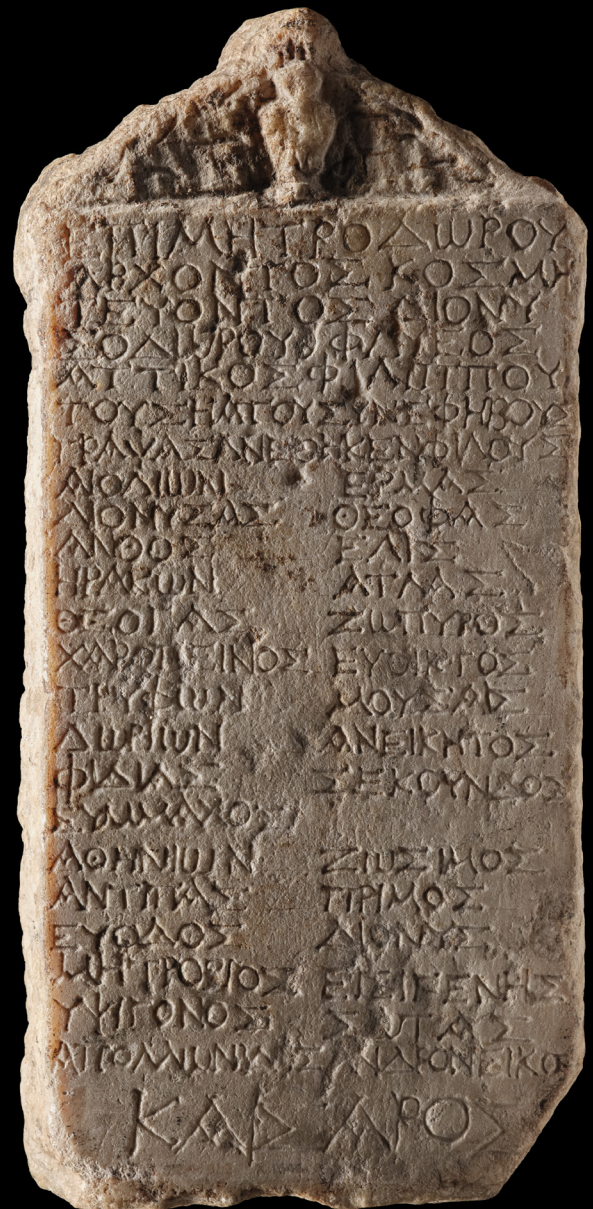 ΕΠΙ ΜΗΤΡΟΔΩΡΟΥ
ΑΡΧΟΝΤΟΣ ΚΟΣΜΗ
ΤΕΥΟΝΤΟΣ ΔΙΟΝΥ
ΣΟΔΩΡΟΥ ΦΛΥΕΟΣ
ΑΤΤΙΚΟΣ ΦΙΛΙΠΠΟΥ
ΤΟΥΣ ΕΑΤΟΥ ΣΥΝΕΦΗΒΟΥΣ
ΓΡΑΨΑΣ ΑΝΕΘΗΚΕΝ ΦΙΛΟΥΣ
ΑΙΟΛΙΩΝ ΕΡΜΑΣ
ΔΙΟΝΥΣΑΣ ΘΕΟΦΑΣ
ΑΝΘΟΣ ΕΛΙΣ
ΗΡΑΚΩΝ ΑΤΛΑΣ
ΘΕΟΓΑΣ ΖΩΠΥΡΟΣ
ΧΑΡΟΠΕΙΝΟΣ ΕΥΘΙΚΤΟΣ
ΤΡΥΦΩΝ
ΔΩΡΙΩΝ ΑΝΕΙΚΗΤΟΣ
ΦΙΔΙΑΣ ΣΕΚΟΥΝΔΟΣ
ΣΥΜΜΑΧΟΣ
ΑΘΗΝΙΩΝ ΖΩΣΙΜΟΣ
ΑΝΤΙΠΑΣ ΠΡΙΜΟΣ
ΕΥΟΔΟΣ ΔΙΟΝΥΣ
ΜΗΤΡΟΒΙΟΣ ΕΙΣΙΓΕΝΗΣ
ΥΨΙΓΟΝΟΣ ΣΩΤΑΣ
ΑΝΔΡΟΝΕΙΚΟΣ
ΚΑΙΣΑΡΟΣ